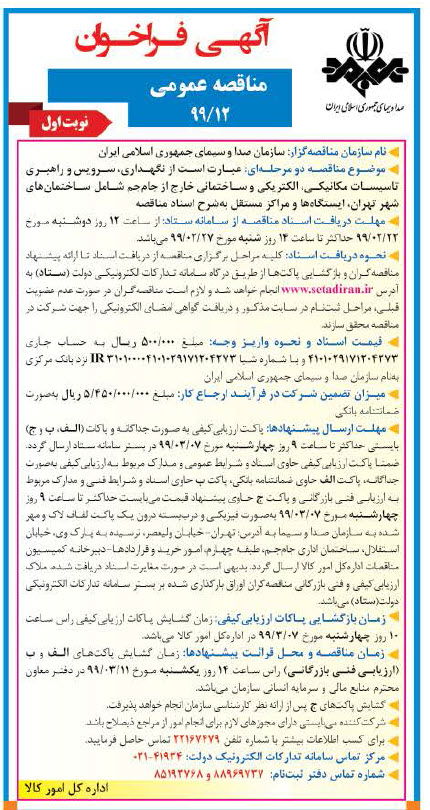 آگهی فراخوان
مناقصه عمومی
۹۹/۱۲
نوبت اول
صدا و سیمای جمهوری اسلامی ایران
نام سازمان مناقصه‌گزار: سازمان صدا و سیمای جمهوری اسلامی ایران
موضوع مناقصه دو مرحله‌ای: عبارت است از نگهداری، سرویس و راهبری
تاسیسات مکانیکی، الکتریکی و ساختمانی خارج از جام‌جم شامل ساختمان‌های
شهر تهران، ایستگاه‌ها و مراکز مستقل به‌شرح اسناد مناقصه
مهلت دریافت اسناد مناقصه از سامانه ستاد: از ساعت ۱۲ روز دوشنبه مورخ
۹۹/۰۲/۲۲ حداکثر تا ساعت ۱۴ روز شنبه مورخ ۹۹/۰۲/۲۷ می‌باشد.
نحوه دریافت اسناد: کلیه مراحل برگزاری مناقصه از دریافت اسناد تا ارائه پیشنهاد
مناقصه‌گران و بازگشایی پاکت‌ها از طریق درگاه سامانه تدارکات الکترونیکی دولت (ستاد) به
آدرس www.setadiran.ir انجام خواهد شد و لازم است مناقصه‌گران در صورت عدم عضویت
قبلی، مراحل ثبت‌نام در سایت مذکور و دریافت گواهی امضای الکترونیکی را جهت شرکت در
مناقصه محقق سازند.
قیمت اسناد و نحوه واریز وجه: مبلغ ۵۰۰/۰۰۰ ریال به حساب جاری
۴۱۰۱۰۲۹۱۷۱۲۰۴۲۷۳ و با شماره شبا IR ۳۱۰۱۰۰۰۰۴۱۰۱۰۲۹۱۷۱۲۰۴۲۷۳ نزد بانک مرکزی
به‌نام سازمان صدا و سیمای جمهوری اسلامی ایران
میزان تضمین شرکت در فرآیند ارجاع کار: مبلغ ۵/۴۵۰/۰۰۰/۰۰۰ ریال به‌صورت
ضمانتنامه بانکی
مهلت ارسال پیشنهادها: پاکت ارزیابی‌کیفی به صورت جداگانه و پاکات (الف، ب و ج)
بایستی حداکثر تا ساعت ۹ روز چهارشنبه مورخ ۹۹/۰۳/۰۷ در بستر سامانه ستاد ارسال گردد.
ضمنا پاکت ارزیابی‌کیفی حاوی اسناد و شرایط عمومی و مدارک مربوط به ارزیابی‌کیفی به‌صورت
جداگانه، پاکت الف حاوی ضمانتنامه بانکی، پاکت ب حاوی اسناد و شرایط فنی و مدارک مربوط
به ارزیابی فنی بازرگانی و پاکت ج حاوی پیشنهاد قیمت می‌بایست حداکثر تا ساعت ۹ روز
چهارشنبه مورخ ۹۹/۰۳/۰۷ به‌صورت فیزیکی و دربسته درون یک پاکت لفاف لاک و مهر
شده به سازمان صدا و سیما به آدرس: تهران-خیابان ولیعصر، نرسیده به پارک وی، خیابان
استقلال، ساختمان اداری جام‌جم، طبقه چهارم، امور خرید و قراردادها-دبیرخانه کمیسیون
مناقصات اداره‌کل امور کالا ارسال گردد. بدیهی است در صورت مغایرت اسناد دریافت شده، ملاک
ارزیابی‌کیفی و فنی بازرگانی مناقصه‌گران اوراق بارگذاری شده بر بستر سامانه تدارکات الکترونیکی
دولت(ستاد) می‌باشد.
زمان بازگشایی پاکات ارزیابی‌کیفی: زمان گشایش پاکات ارزیابی کیفی راس ساعت
۱۰ روز چهارشنبه مورخ ۹۹/۳/۰۷ در اداره‌کل امور کالا می‌باشد.
زمان مناقصه و محل قرائت پیشنهادها: زمان گشایش پاکت‌های الف و ب
(ارزیابی فنی بازرگانی) راس ساعت ۱۴ روز یکشنبه مورخ ۹۹/۰۳/۱۱ در دفتر معاون
محترم منابع مالی و سرمایه انسانی سازمان می‌باشد.
گشایش پاکت‌های ج پس از ارائه نظر کارشناسی سازمان انجام خواهد پذیرفت.
شرکت‌کننده می‌بایستی دارای مجوزهای لازم برای انجام امور از مراجع ذیصلاح باشد.
برای کسب اطلاعات بیشتر با شماره تلفن ۲۲۱۶۷۴۷۹ تماس حاصل فرمایید.
مرکز تماس سامانه تدارکات الکترونیک دولت: ۴۱۹۳۴-۰۲۱
شماره تماس دفتر ثبت‌نام: ۸۸۹۶۹۷۳۷ و ۸۵۱۹۳۷۶۸
اداره کل امور کالا